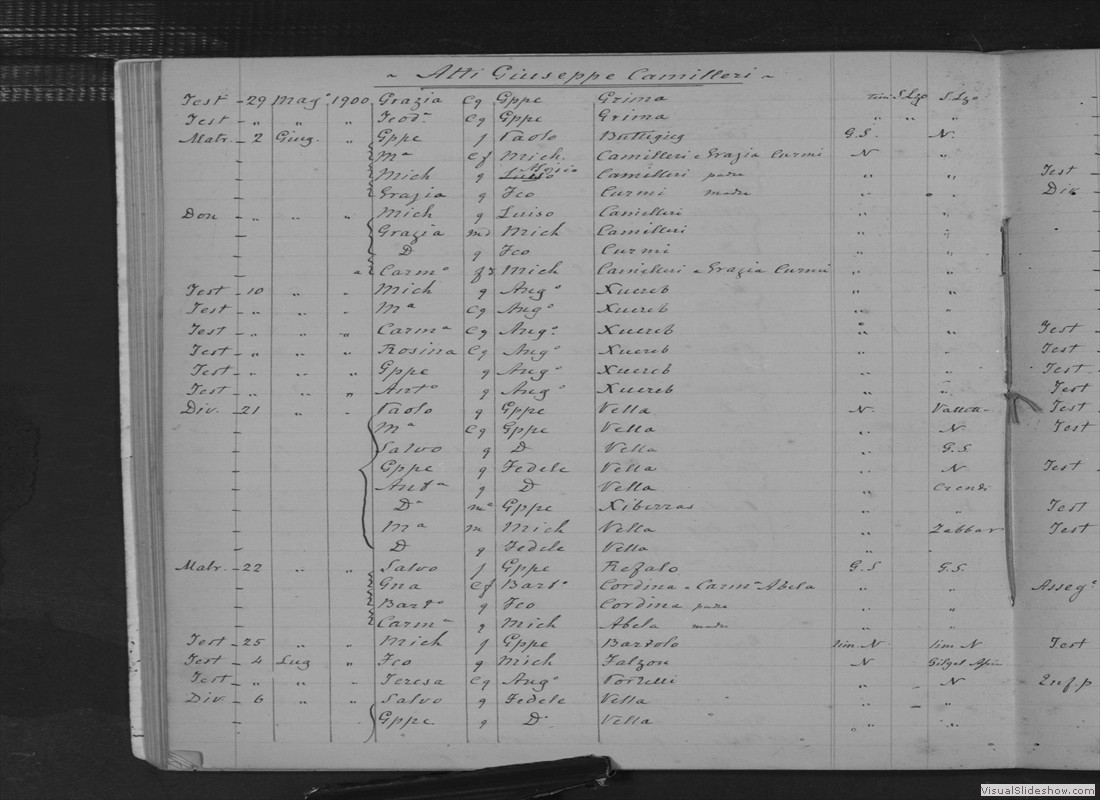 ~ Atti Giuseppe Camilleri ~
Test - 29 Magº 1900 Grazia Cg Gppe Grima S. Lzo S. Lzo
Test - " " " Teodª Cg Gppe Grima " " "
Matr. - 2 Giug. " Gppe f Paolo Buttigieg G.S. N.
- Mª Cf Mich. Camilleri e Grazia Curmi N "
- Mich g Luiso Aloisio Camilleri padre " " Test
- Grazia g Fco Curmi madre " " Div
Don - " " " Mich g Luiso Camilleri " "
- Grazia md Mich Camilleri " "
- D g Fco Curmi " "
- Carmº Mich Camilleri e Grazia Curmi " "
Test - 10 " " Mich g Angº Xuereb " "
Test - " " " Mª Cg Angº Xuereb " "
Test - " " " Carmª Cg Angº Xuereb " " Test
Test - " " " Rosina Cg Angº Xuereb " " Test
Test - " " " Gppe g Angº Xuereb " " Test
Test - " " " Antº g Angº Xuereb " " Test
Div. - 21 " " Paolo g Gppe Vella N. Valletta Test
- Mª Cg Gppe Vella " N Test
- Salvo g D Vella " G.S
- Gppe g Fedele Vella " N Test
- Antª g D Vella " Crendi
- Dª mª Gppe Xiberras " " Test
- Mª m Mich Vella " Zabbar Test
- D g Fedele Vella " "
Matr. - 22 " " Salvo f Gppe Refalo G.S G.S.
- Gna Cf Bartº Cordina e Carmª Abela " " Assegº
- Bartº g Fco Cordina padre " "
- Carmª g Mich Abela madre " "
Test - 25 " " Mich f Gppe Bartolo lim. N lim N Test
Test - 4 Lug " Fco g Mich Falzon N
Test - " " " Teresa Cg Angº Portelli " N Inf.p
Div - 6 " " Salvo g Fedele Vella " "
- Gppe g D. Vella " "
VisualSlideshow.com